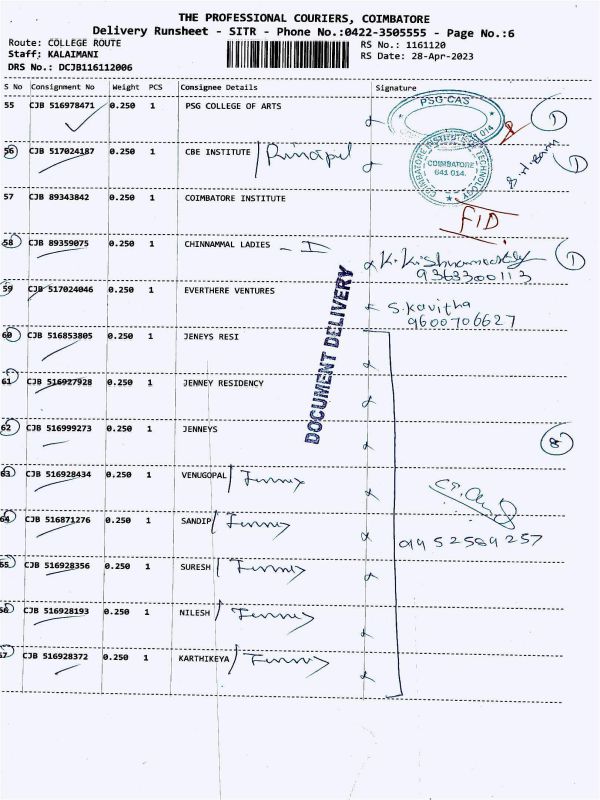 THE PROFESSIONAL COURIERS, COIMBATORE
Delivery Runsheet - SITR - Phone No.:0422-3505555 - Page No.:6
Route: COLLEGE ROUTE
RS No.: 1161120
Staff: KALAIMANI
RS Date: 28-Apr-2023
DRS No.: DCJB116112006
S No Consignment No Weight PCS Consignee Details Signature
55 CJB 516978471 0.250 1 PSG COLLEGE OF ARTS
PSG CAS
1
56 CJB 517024187 0.250 1 CBE INSTITUTE / Principal
COIMBATORE INSTITUTE OF TECHNOLOGY
COIMBATORE
641 014.
1
57 CJB 89343842 0.250 1 COIMBATORE INSTITUTE
FID
58 CJB 89359075 0.250 1 CHINNAMMAL LADIES - I
9363300113
1
59 CJB 517024046 0.250 1 EVERTHERE VENTURES
S. Kavitha
9600706627
DOCUMENT DELIVERY
60 CJB 516853805 0.250 1 JENEYS RESI
61 CJB 516927928 0.250 1 JENNEY RESIDENCY
62 CJB 516999273 0.250 1 JENNEYS
8
63 CJB 516928434 0.250 1 VENUGOPAL / Jenneys
64 CJB 516871276 0.250 1 SANDIP / Jenneys
9952589257
65 CJB 516928356 0.250 1 SURESH / Jenneys
66 CJB 516928193 0.250 1 NILESH / Jenneys
67 CJB 516928372 0.250 1 KARTHIKEYA / Jenneys